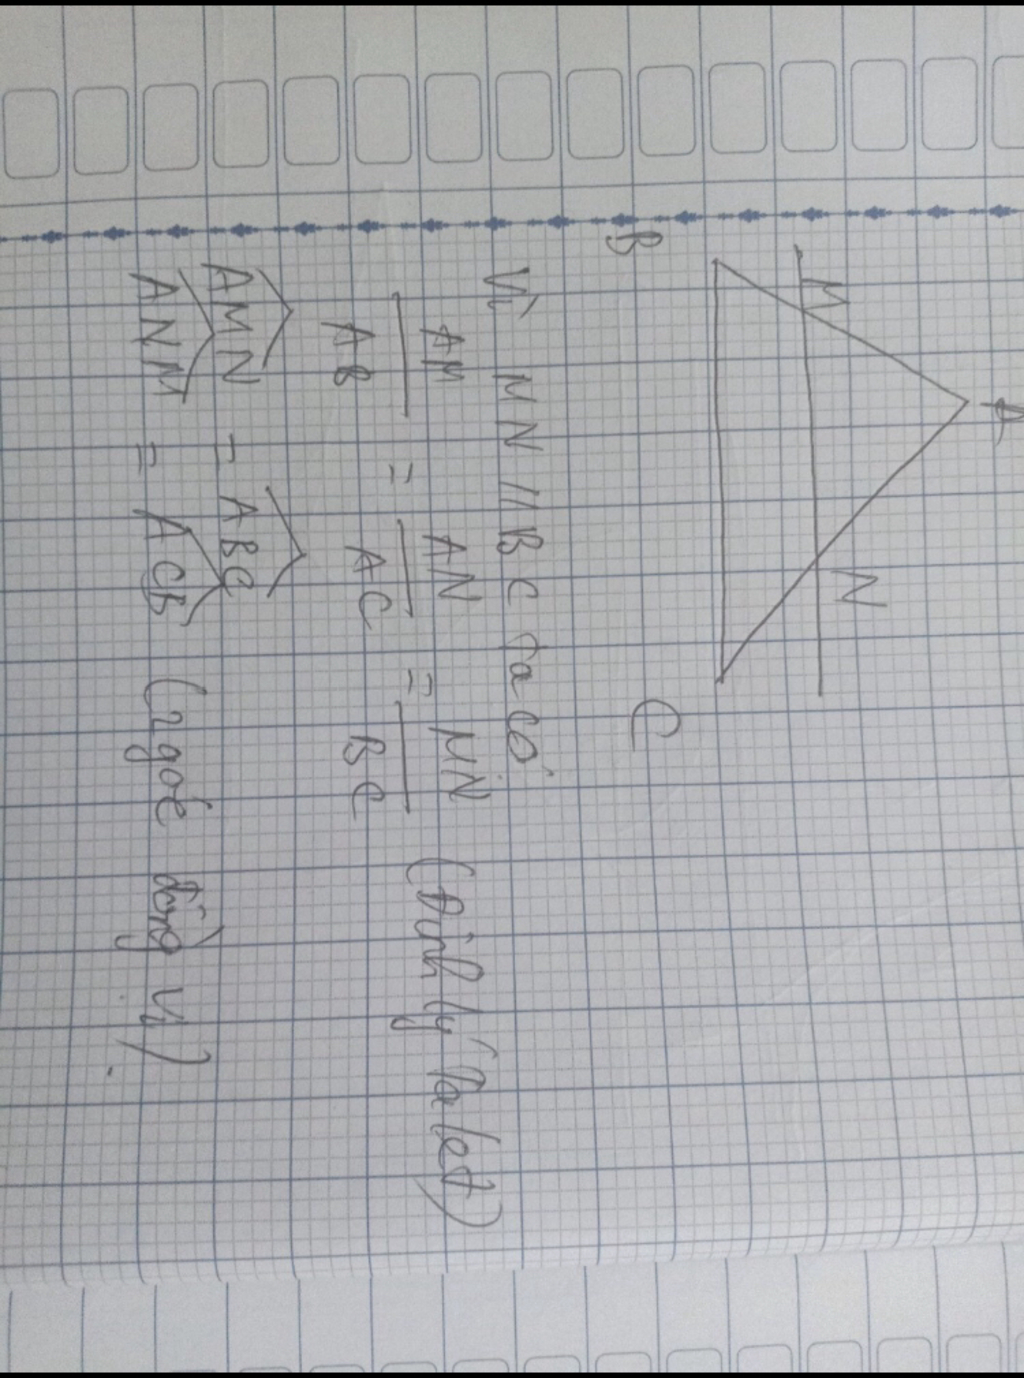 A
M N
B C
Vì MN // BC ta có
AM/AB = AN/AC = MN/BC (Định lý Talet)
AMN = ABC
ANM = ACB (2 góc đồng vị)